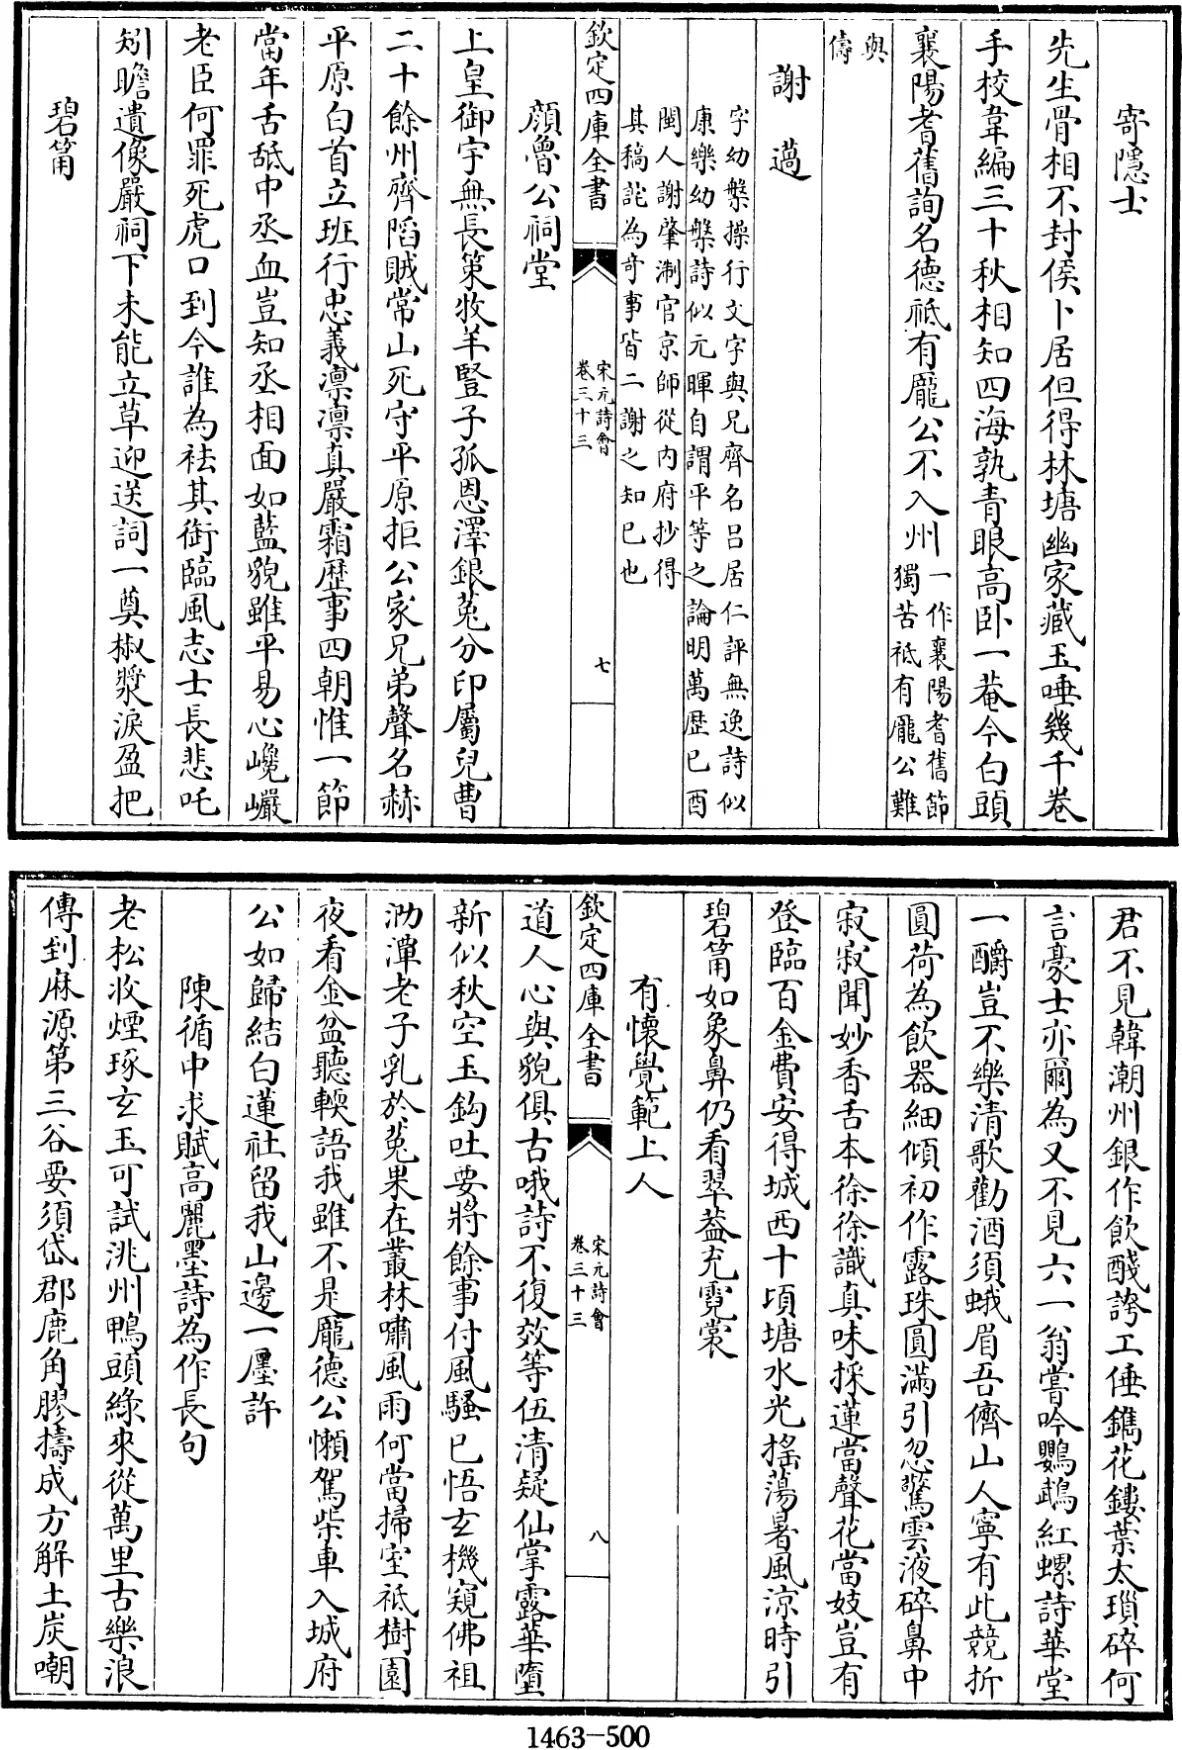 寄隱士
先生骨相不封侯卜居但得林塘幽家藏玉唾幾千卷
手校韋編三十秋相知四海孰青眼高卧一菴今白頭
襄陽耆舊詢名德祗有龐公不入州一作襄陽耆舊節
獨苦祗有龐公難
與
儔
謝薖
字幼槃操行文字與兄齊名吕居仁評無逸詩似
康樂幼槃詩似元暉自謂平等之論明萬歷已酉
閩人謝肇淛官京師從内府抄得
其稿詫為奇事皆二謝之知已也
顔魯公祠堂
欽定四庫全書
宋元詩會
卷三十三
七
上皇御宇無長策牧羊豎子孤恩澤銀菟分印屬兒曹
二十餘州齊陷賊常山死守平原拒公家兄弟聲名赫
平原白首立班行忠義凛凛真嚴霜歴事四朝惟一節
當年舌舐中丞血豈知丞相面如藍貌雖平易心巉巖
老臣何罪死虎口到今誰為袪其銜臨風志士長悲吒
矧瞻遺像嚴祠下未能立草迎送詞一奠椒漿淚盈把
碧筩
君不見韓潮州銀作飲醆誇工倕鐫花鏤葉太瑣碎何
言豪士亦爾為又不見六一翁嘗吟鸚鵡紅螺詩華堂
一釂豈不樂清歌勸酒須蛾眉吾儕山人寧有此競折
圓荷為飲器細傾初作露珠圓滿引忽驚雲液碎鼻中
寂寂聞妙香舌本徐徐識真味採蓮當聲花當妓豈有
登臨百金費安得城西十頃塘水光摇蕩暑風涼時引
碧筩如象鼻仍看翠葢充霓裳
有懷覺範上人
欽定四庫全書
宋元詩會
卷三十三
八
道人心與貌俱古哦詩不復效等伍清疑仙掌露華墮
新似秋空玉鈎吐要將餘事付風騷已悟玄機窺佛祖
泐潭老子乳於菟果在叢林嘯風雨何當掃室祗樹園
夜看金盆聽輭語我雖不是龐德公懶駕柴車入城府
公如歸結白蓮社留我山邊一廛許
陳循中求賦高麗墨詩為作長句
老松收煙琢玄玉可試洮州鴨頭綠來從萬里古樂浪
傳到麻源第三谷要須岱郡鹿角膠擣成方解土炭嘲
1463-500